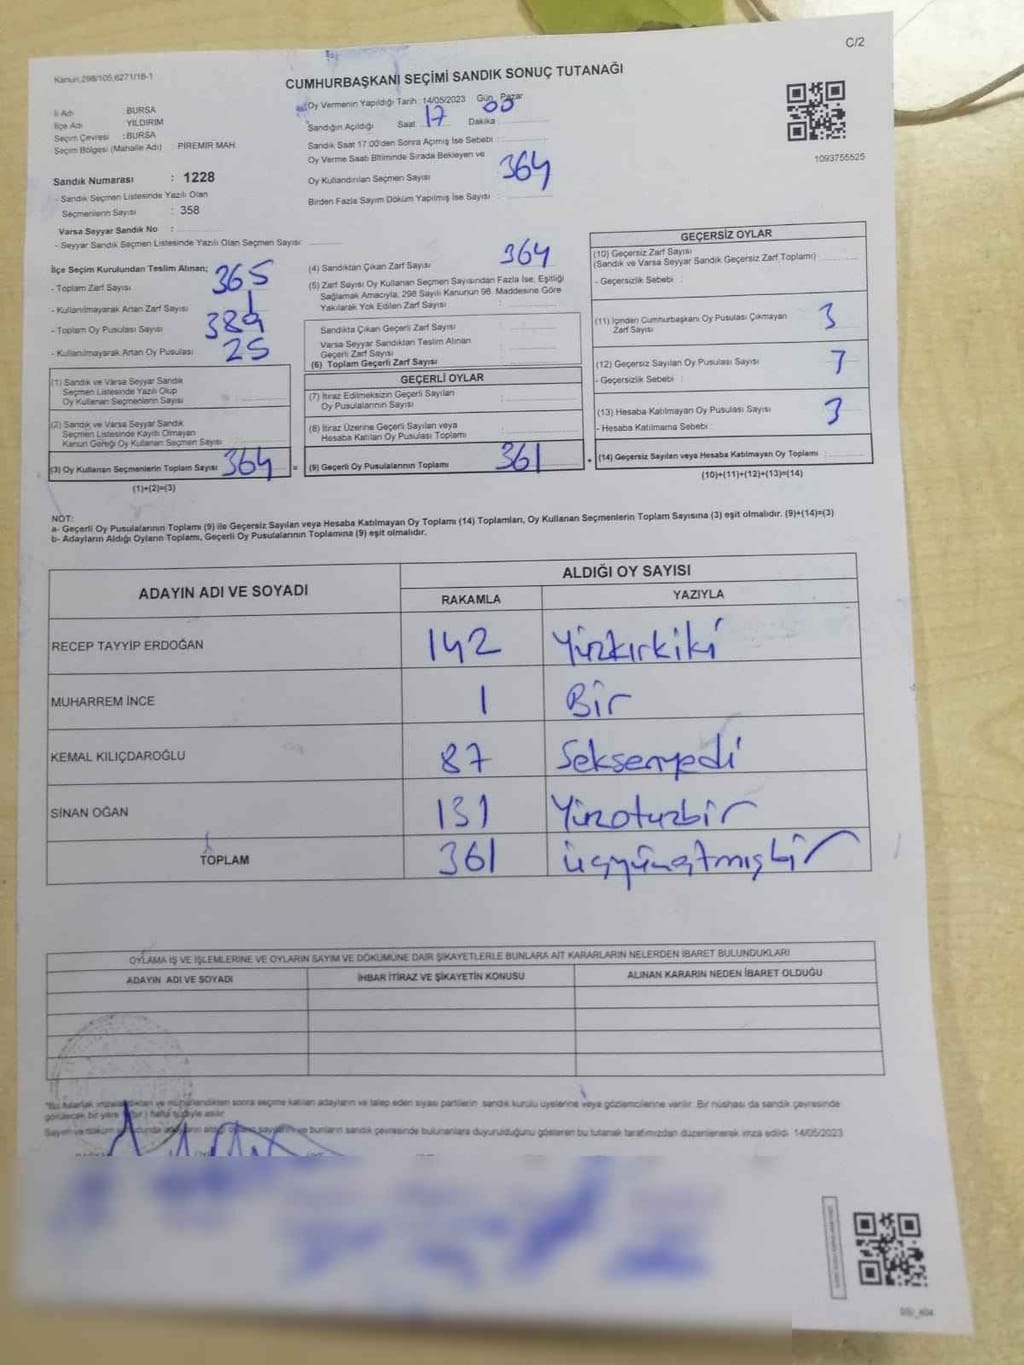 C/2
Kanun,298/105,6271/18-1
CUMHURBAŞKANI SEÇİMİ SANDIK SONUÇ TUTANAĞI
İl Adı : BURSA
İlçe Adı YILDIRIM
Seçim Çevresi : BURSA
Seçim Bölgesi (Mahalle Adı) : PİREMİR MAH.
Oy Vermenin Yapıldığı Tarih: 14/05/2023 Gün Pazar
Sandığın Açıldığı Saat : 17 Dakika : 00
Sandık Saat 17:00'den Sonra Açımış İse Sebebi :
Oy Verme Saati Bitiminde Sırada Bekleyen ve
Oy Kullandırılan Seçmen Sayısı 364
Birden Fazla Sayım Döküm Yapılmış İse Sayısı :
1093755525
Sandık Numarası : 1228
- Sandık Seçmen Listesinde Yazılı Olan
Seçmenlerin Sayısı : 358
Varsa Seyyar Sandık No :
- Seyyar Sandık Seçmen Listesinde Yazılı Olan Seçmen Sayısı
İlçe Seçim Kurulundan Teslim Alınan;
- Toplam Zarf Sayısı 365
- Kullanılmayarak Artan Zarf Sayısı 1
- Toplam Oy Pusulası Sayısı 389
- Kullanılmayarak Artan Oy Pusulası 25
(1) Sandık ve Varsa Seyyar Sandık
Seçmen Listesinde Yazılı Olup
Oy Kullanan Seçmenlerin Sayısı
(2) Sandık ve Varsa Seyyar Sandık
Seçmen Listesinde Kayıtlı Olmayan
Kanun Gereği Oy Kullanan Seçmen Sayısı
(3) Oy Kullanan Seçmenlerin Toplam Sayısı 364 =
(1)+(2)=(3)
(4) Sandıktan Çıkan Zarf Sayısı 364
(5) Zarf Sayısı Oy Kullanan Seçmen Sayısından Fazla İse, Eşitliği
Sağlamak Amacıyla, 298 Sayılı Kanunun 98. Maddesine Göre
Yakılarak Yok Edilen Zarf Sayısı :
Sandıkta Çıkan Geçerli Zarf Sayısı :
Varsa Seyyar Sandıktan Teslim Alınan
Geçerli Zarf Sayısı
(6) Toplam Geçerli Zarf Sayısı
GEÇERLİ OYLAR
(7) İtiraz Edilmeksizin Geçerli Sayılan
Oy Pusulalarının Sayısı
(8) İtiraz Üzerine Geçerli Sayılan veya
Hesaba Katılan Oy Pusulası Toplamı
(9) Geçerli Oy Pusulalarının Toplamı 361 +
GEÇERSİZ OYLAR
(10) Geçersiz Zarf Sayısı
(Sandık ve Varsa Seyyar Sandık Geçersiz Zarf Toplamı)
- Geçersizlik Sebebi :
(11) İçinden Cumhurbaşkanı Oy Pusulası Çıkmayan
Zarf Sayısı 3
(12) Geçersiz Sayılan Oy Pusulası Sayısı 7
- Geçersizlik Sebebi :
(13) Hesaba Katılmayan Oy Pusulası Sayısı 3
- Hesaba Katılmama Sebebi :
(14) Geçersiz Sayılan veya Hesaba Katılmayan Oy Toplamı :
(10)+(11)+(12)+(13)=(14)
NOT:
a- Geçerli Oy Pusulalarının Toplamı (9) ile Geçersiz Sayılan veya Hesaba Katılmayan Oy Toplamı (14) Toplamları, Oy Kullanan Seçmenlerin Toplam Sayısına (3) eşit olmalıdır. (9)+(14)=(3)
b- Adayların Aldığı Oyların Toplamı, Geçerli Oy Pusulalarının Toplamına (9) eşit olmalıdır.
ADAYIN ADI VE SOYADI ALDIĞI OY SAYISI
RAKAMLA YAZIYLA
RECEP TAYYİP ERDOĞAN 142 Yüzkırkiki
MUHARREM İNCE 1 Bir
KEMAL KILIÇDAROĞLU 87 Seksenyedi
SİNAN OĞAN 131 Yüzotuzbir
TOPLAM 361 üçyüzatmışbir
OYLAMA İŞ VE İŞLEMLERİNE VE OYLARIN SAYIM VE DÖKÜMÜNE DAİR ŞİKAYETLERLE BUNLARA AİT KARARLARIN NELERDEN İBARET BULUNDUKLARI
ADAYIN ADI VE SOYADI İHBAR İTİRAZ VE ŞİKAYETİN KONUSU ALINAN KARARIN NEDEN İBARET OLDUĞU
ve mühürlendikten sonra seçime katılan adayların ve talep eden siyasi partilerin sandık kurulu üyelerine veya gözlemcilerine verilir. Bir nüshası da sandık çevresinde
görülecek bir yere hafta süreyle asılır
Sayım ve döküm ve bunların sandık çevresinde bulunanlara duyurulduğunu gösteren bu tutanak tarafımızdan düzenlenerek imza edildi. 14/05/2023